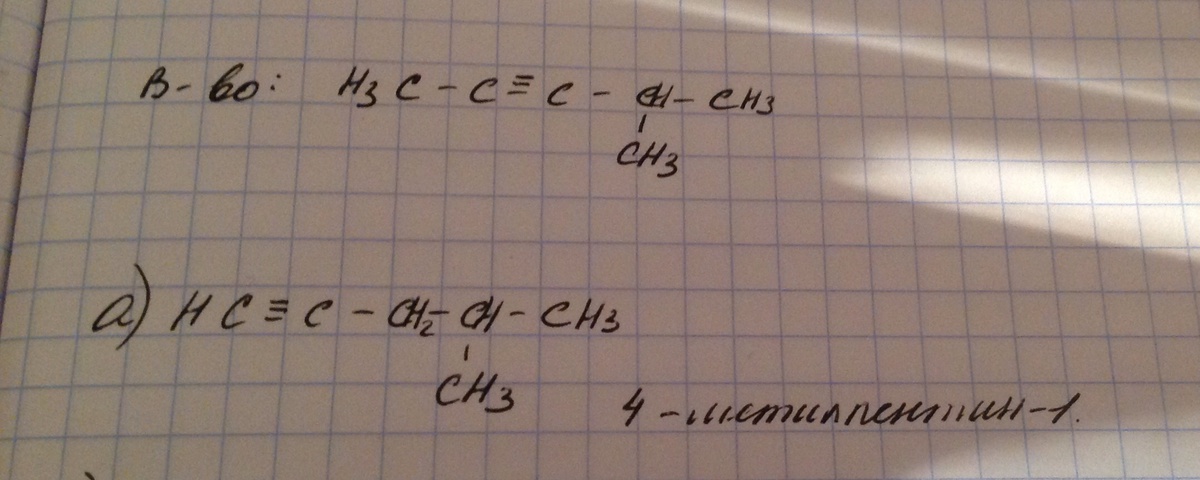 В-во: H₃C - C ≡ C - CH - CH₃
CH₃
а) HC ≡ C - CH₂ - CH - CH₃
CH₃
4 - метилпентин-1.